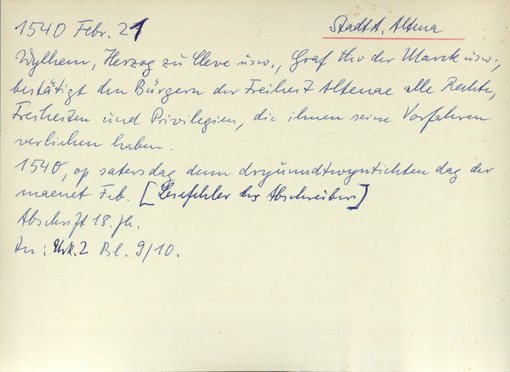 1540 Febr. 21
StadtA. Altena
Wylhem, Herzog zu Cleve usw., Graf thor der Marck usw.,
bestätigt den Bürgern der Freiheit Altenae alle Rechte,
Freiheiten und Privilegien, die ihnen seine Vorfahren
verliehen haben.
1540, op satersdag denn dryunndtwyntichten dag der
maenet Feb. [Lesefehler des Abschreibers]
Abschrift 18. Jh.
In: Urk. 2 Bl. 9/10.